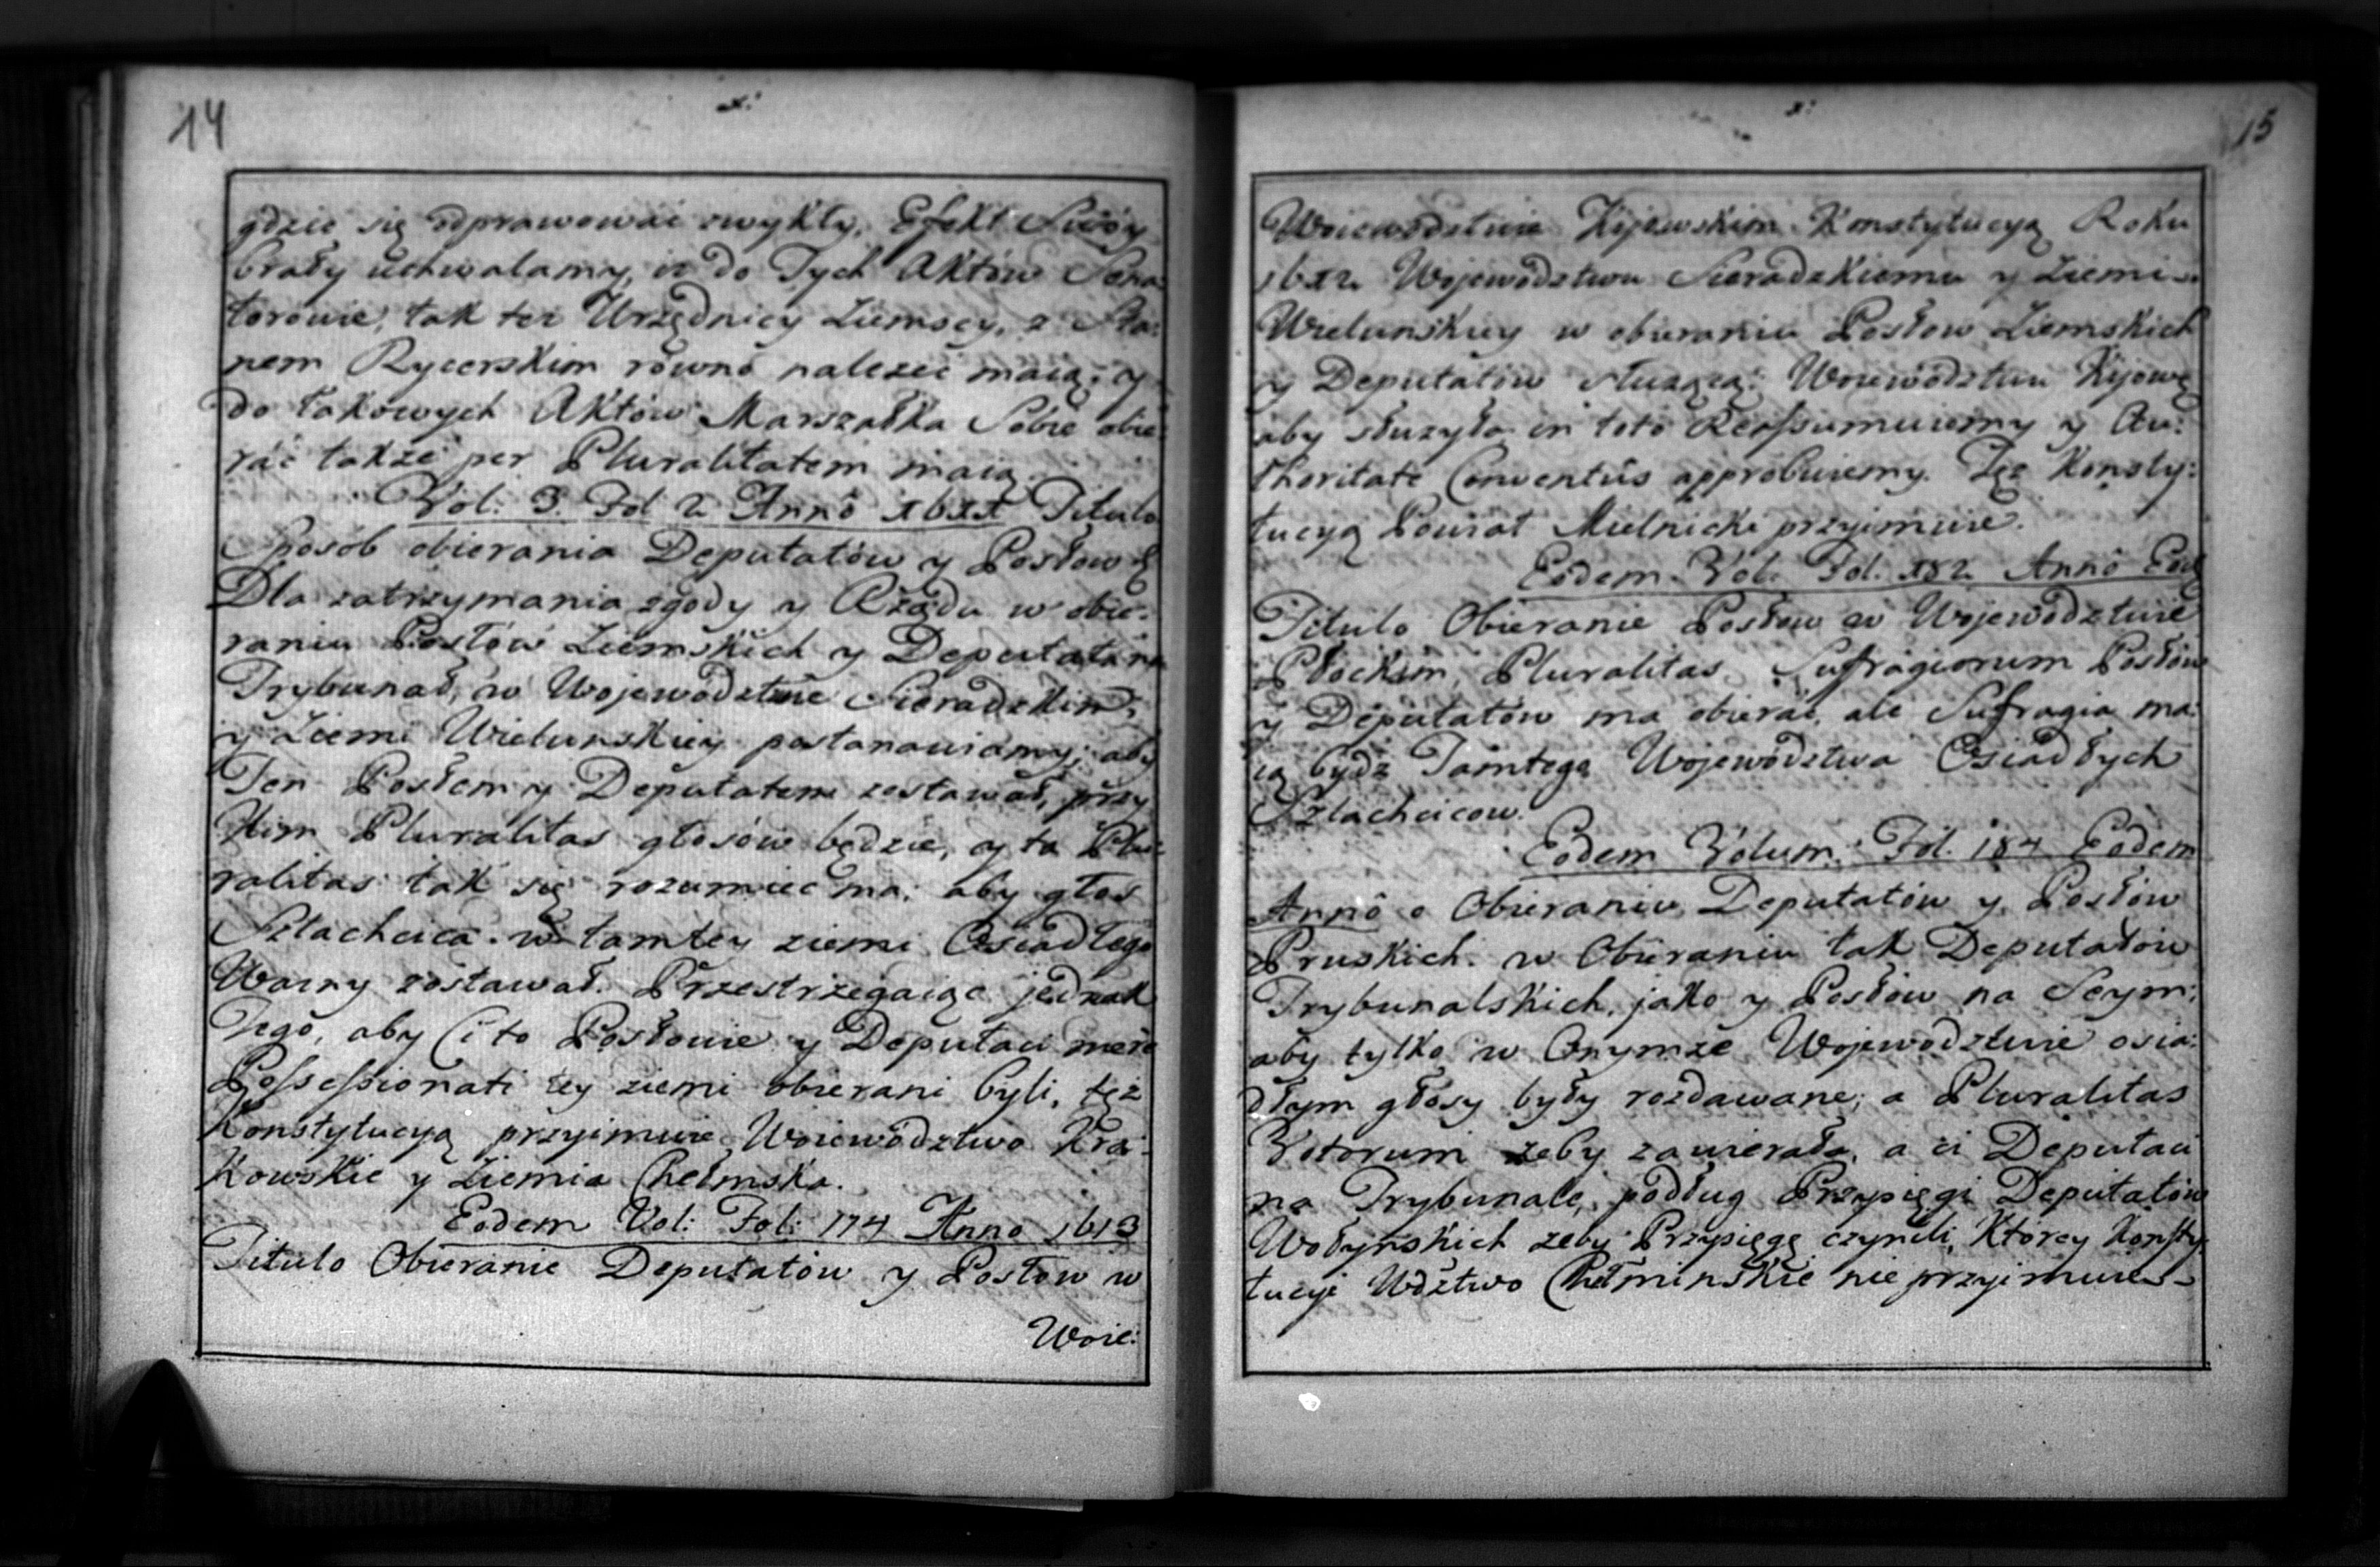 14
gdzie się odprawować zwykły, Efekt Swóy
brały uchwalamy, iż do Tych Aktów Sena:
torowie, tak też Urzędnicy Ziemscy, z Sta:
nem Rycerskim równo należeć maią, y
do takowych Aktów Marszałka Sobie obie:
rać także per Pluralitatem maią.
Vol: 3. Fol 2 Annô 1611 Titulo
Sposób obierania Deputatów y Posłow
Dla zatrzymania zgody y Rządu w obie:
raniu Posłów Ziemskich y Deputató na
Trybunał, w Wojewodztwie Sieradzkim,
y Ziemi Wielunskiey postanawiamy, aby
Ten Posłem y Deputatem zostawał, przy
Kim Pluralitas głosów będzie, y ta Plu:
ralitas tak się rozumiec ma, aby głos
Szlachcica w tamtey ziemi Osiadłego
Wazny zostawał. Przestrzegaiąc jednak
Tego, aby Ci to Posłowie y Deputaci mere
Possessionati tey ziemi obierani byli, tęż
Konstytucyą przyimuie Woiewodztwo Kra:
Kowskie y Ziemia Chełmska.
Eodem Vol: Fol: 174 Anno 1613
Titulo Obieranie Deputatów y Posłow w
Woie:
15
Woiewodztwie Kijewskim Konstytucyą Roku
1612 Wojewodztwu Sieradzkiemu y Ziemi
Wielunskiey w obieraniu Posłow Ziemskich
y Deputatów służącą: Woiewodztwu Kijows:
aby służyła in toto Reassumuiemy y Au:
thoritate Conventûs approbuiemy. Tęż Konsty:
tucyą Powiat Mielnicki przyimuie.
Eodem Vol: Fol. 182 Annô Eod:
Titulo Obieranie Posłow w Wojewodztwie
Płockim, Pluralitas Sufragiorum Posłów
y Deputatów ma obierać, ale Sufragia ma:
ią bydź Tamtego Wojewodztwa Osiadłych
Szlachcicow.
Eodem Volum: Fol. 184 Eodem
Annô o Obieraniu Deputatów y Posłów
Pruskich. w Obieraniu tak Deputatów
Trybunalskich, jako y Posłów na Seym;
aby tylko w Onymże Wojewodztwie osia:
dłym głosy były rozdawane, a Pluralitas
Votorum żeby zawierała, a ci Deputaci
na Trybunale, podług Przysięgi Deputatów
Wołyńskich żeby Przysięgę czynili, Którey Konsty:
tucyi Wdztwo Chełminskie nie przyimuie